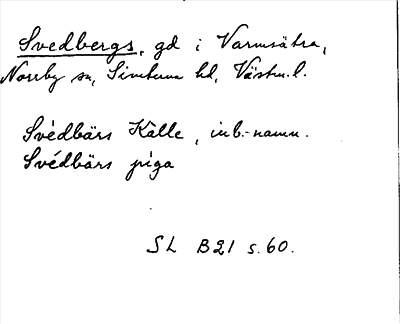 Svedbergs, gd i Varmsätra,
Norrby sn, Simtuna hd, Västm. l.
Svèdbärs Kalle, inb.-namn.
Svédbärs piga
SL B21 s. 60.